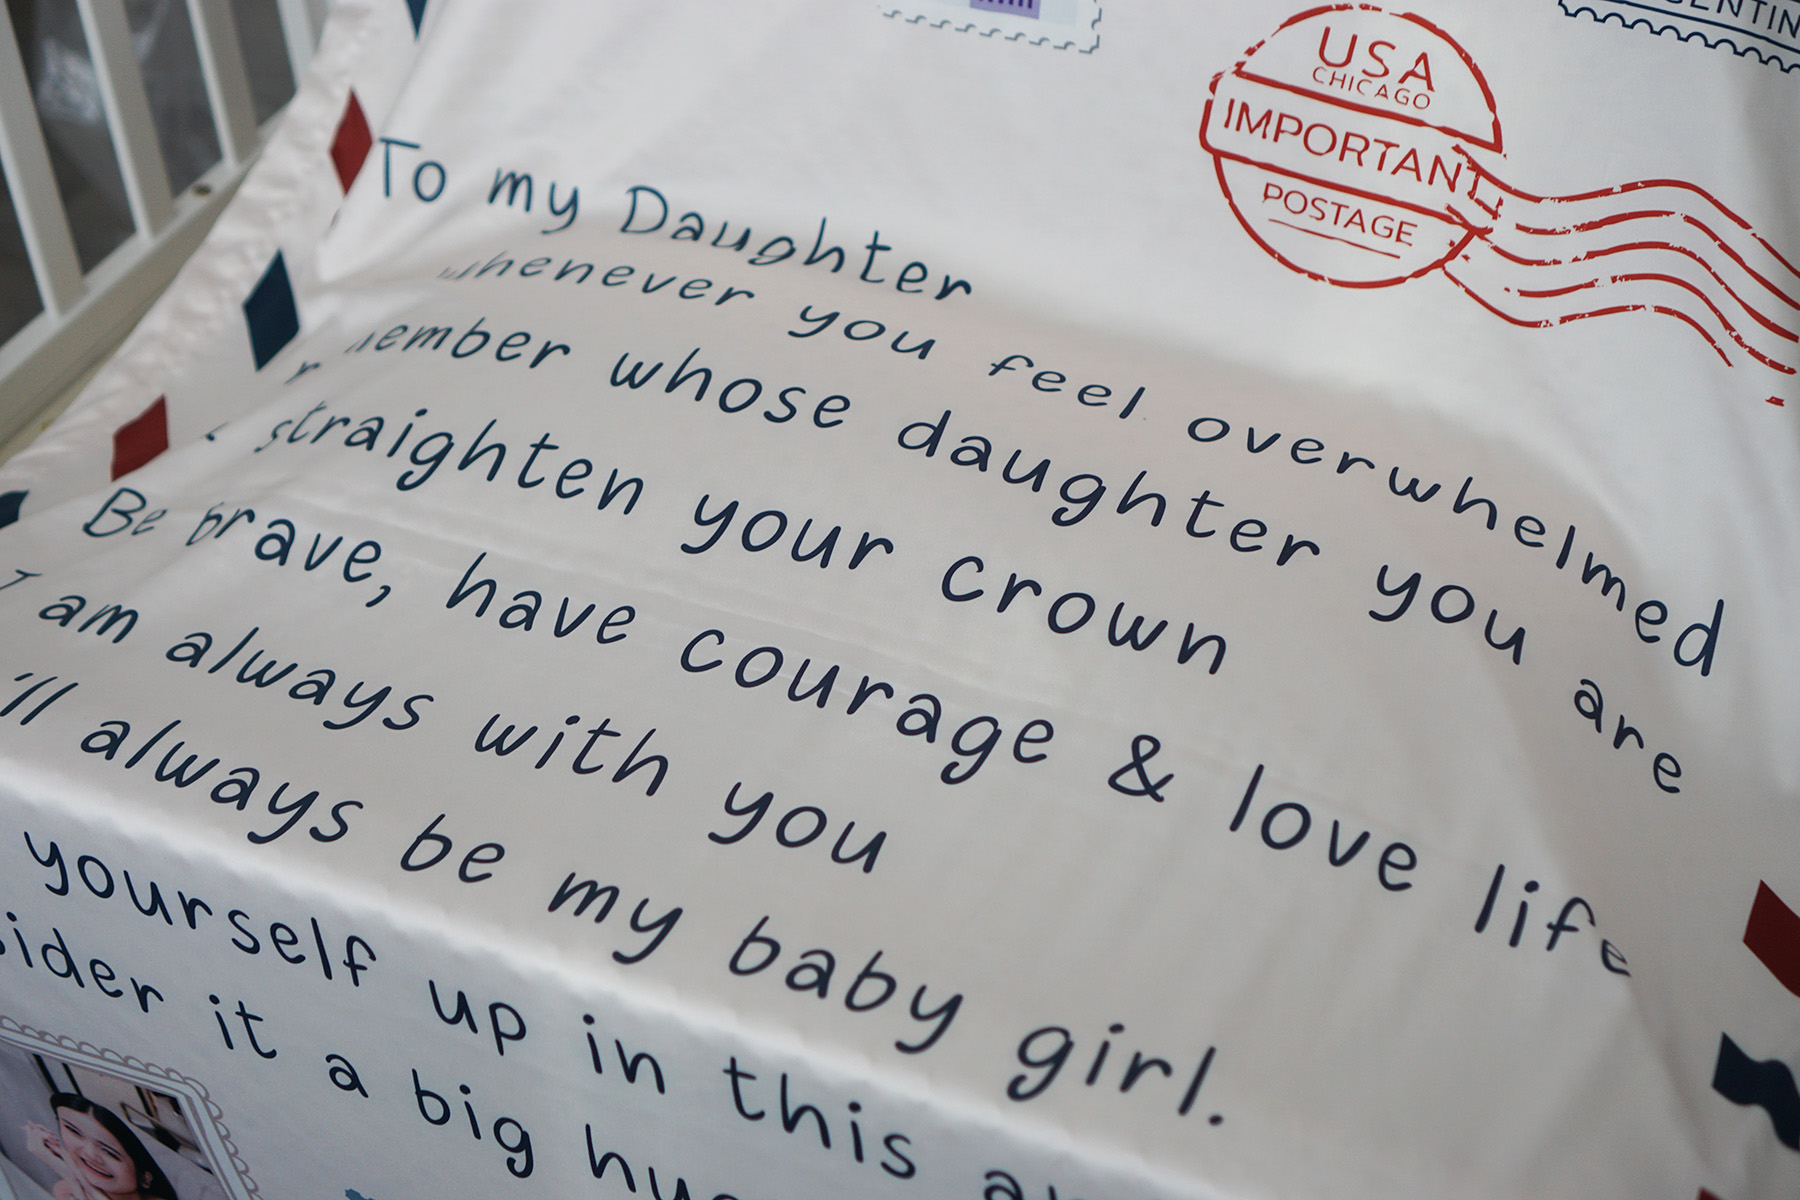 ENTIN
USA
CHICAGO
IMPORTANT
POSTAGE
To my Daughter
whenever you feel overwhelmed
member whose daughter you are
straighten your crown
Be brave, have courage & love life
I am always with you
'll always be my baby girl.
yourself up in this
sider it a big